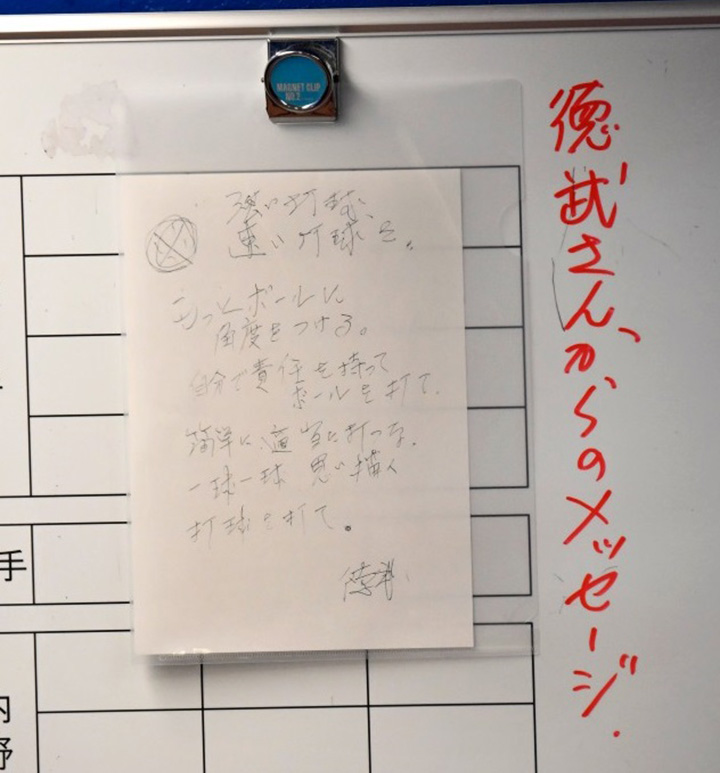 MAGNET CLIP
NO.2
徳武さん、からのメッセージ.
強い打球、
速い打球を。
もっとボールに
角度をつける。
自分で責任を持って
ボールを打て.
簡単に、適当に打つな.
一球一球 思い描く
打球を打て。
徳武
手
内
野